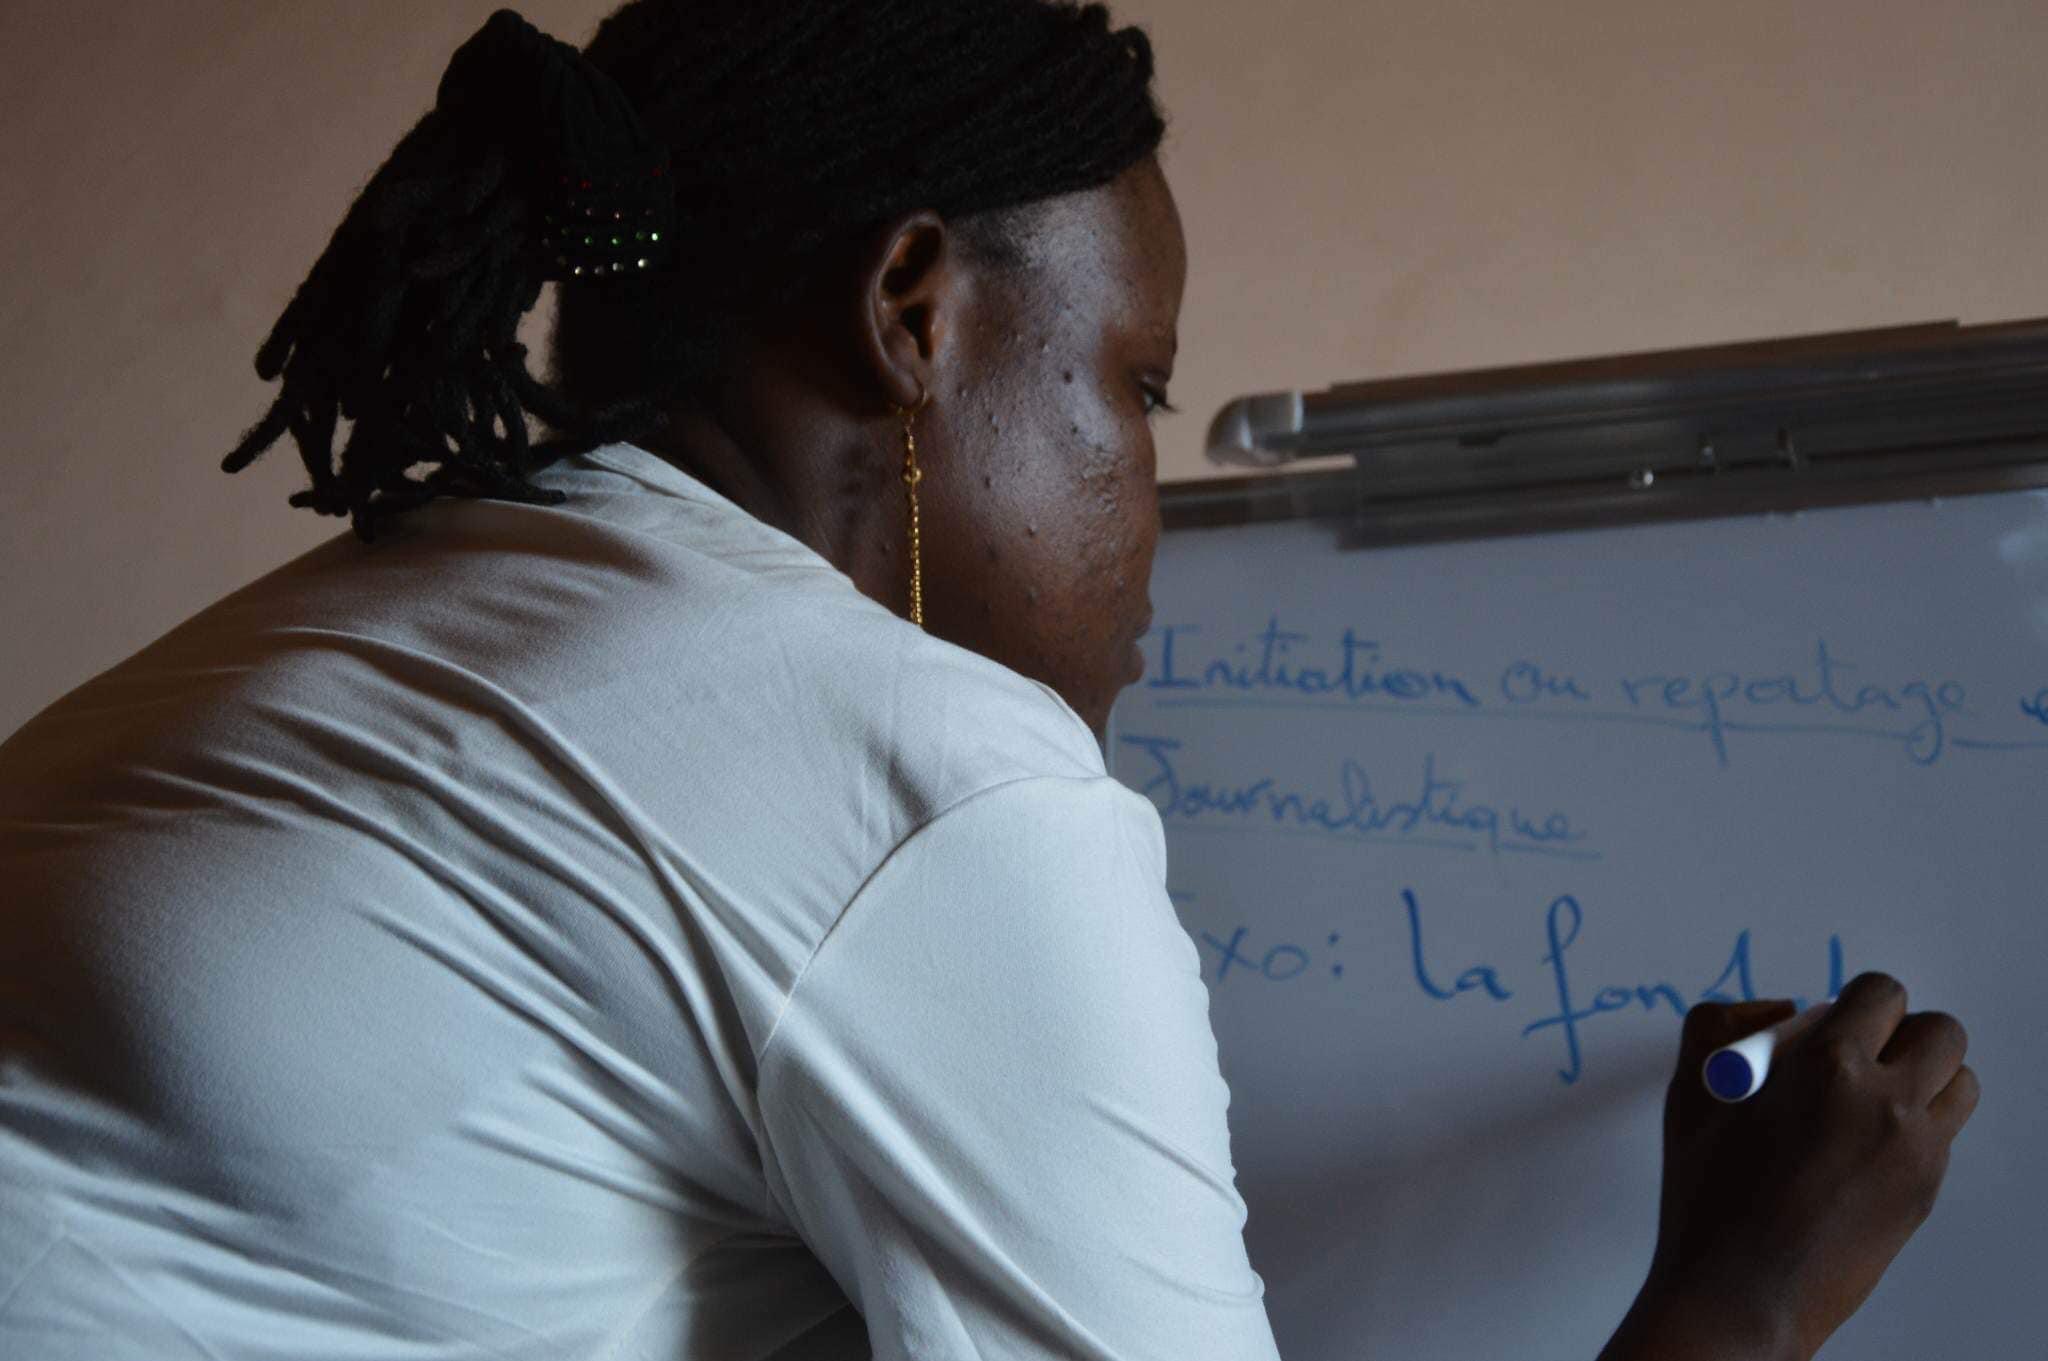 Initiation au reportage
Journalistique
Exo: la fond